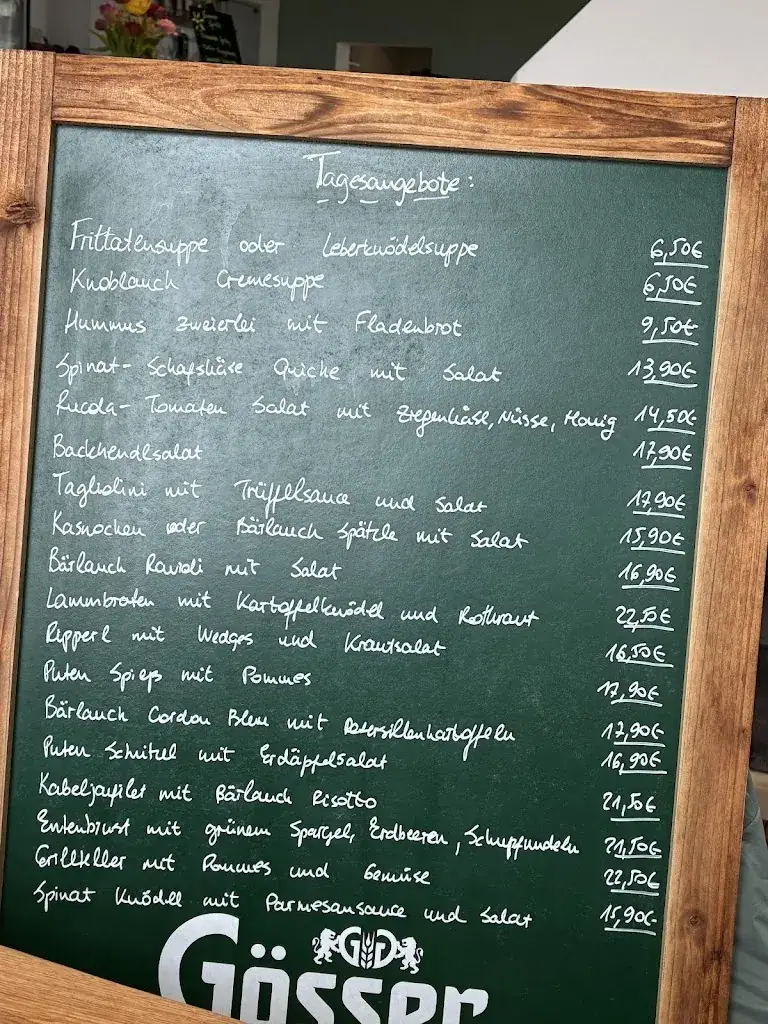 Tagesangebote:
Frittatensuppe oder Leberknödelsuppe 6,50€
Knoblauch Cremesuppe 6,50€
Hummus zweierlei mit Fladenbrot 9,50€
Spinat-Schafskäse Quiche mit Salat 13,90€
Rucola-Tomaten Salat mit Ziegenkäse, Nüsse, Honig 14,50€
Backhendlsalat 17,90€
Tagliolini mit Trüffelsauce und Salat 17,90€
Kasnocken oder Bärlauch Spätzle mit Salat 15,90€
Bärlauch Ravioli mit Salat 16,90€
Lammbraten mit Kartoffelknödel und Rotkraut 22,50€
Ripperl mit Wedges und Krautsalat 16,50€
Puten Spieß mit Pommes 17,90€
Bärlauch Cordon Bleu mit Petersilienkartoffeln 17,90€
Puten Schnitzel mit Erdäpfelsalat 16,90€
Kabeljaufilet mit Bärlauch Risotto 21,50€
Entenbrust mit grünem Spargel, Erdbeeren, Schupfnudeln 21,50€
Grillteller mit Pommes und Gemüse 22,50€
Spinat Knödel mit Parmesansauce und Salat 15,90€
GG
Gösser